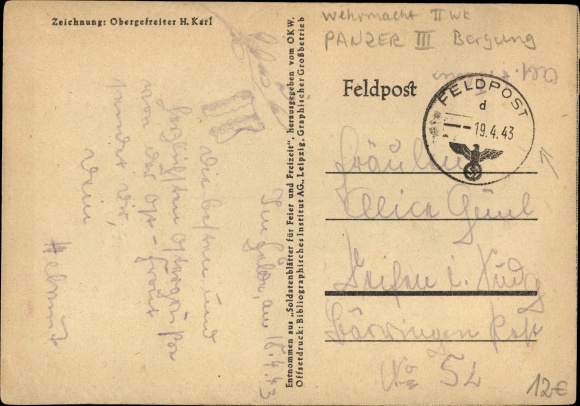 Zeichnung: Obergefreiter H. Karl
Wehrmacht II WK
PANZER III Bergung
Feldpost
FELDPOST
d
19.4.43
Im Felde, am 18.4.43
Die besten und
herzlichsten Ostergrüße
von der Ost-Front
sendet Dir,
Dein
Helmut
Entnommen aus „Soldatenblätter für Feier und Freizeit“, herausgegeben vom OKW.
Offsetdruck: Bibliographisches Institut AG., Leipzig, Graphischer Großbetrieb
Fräulein
Alice
Post
No 52
12€